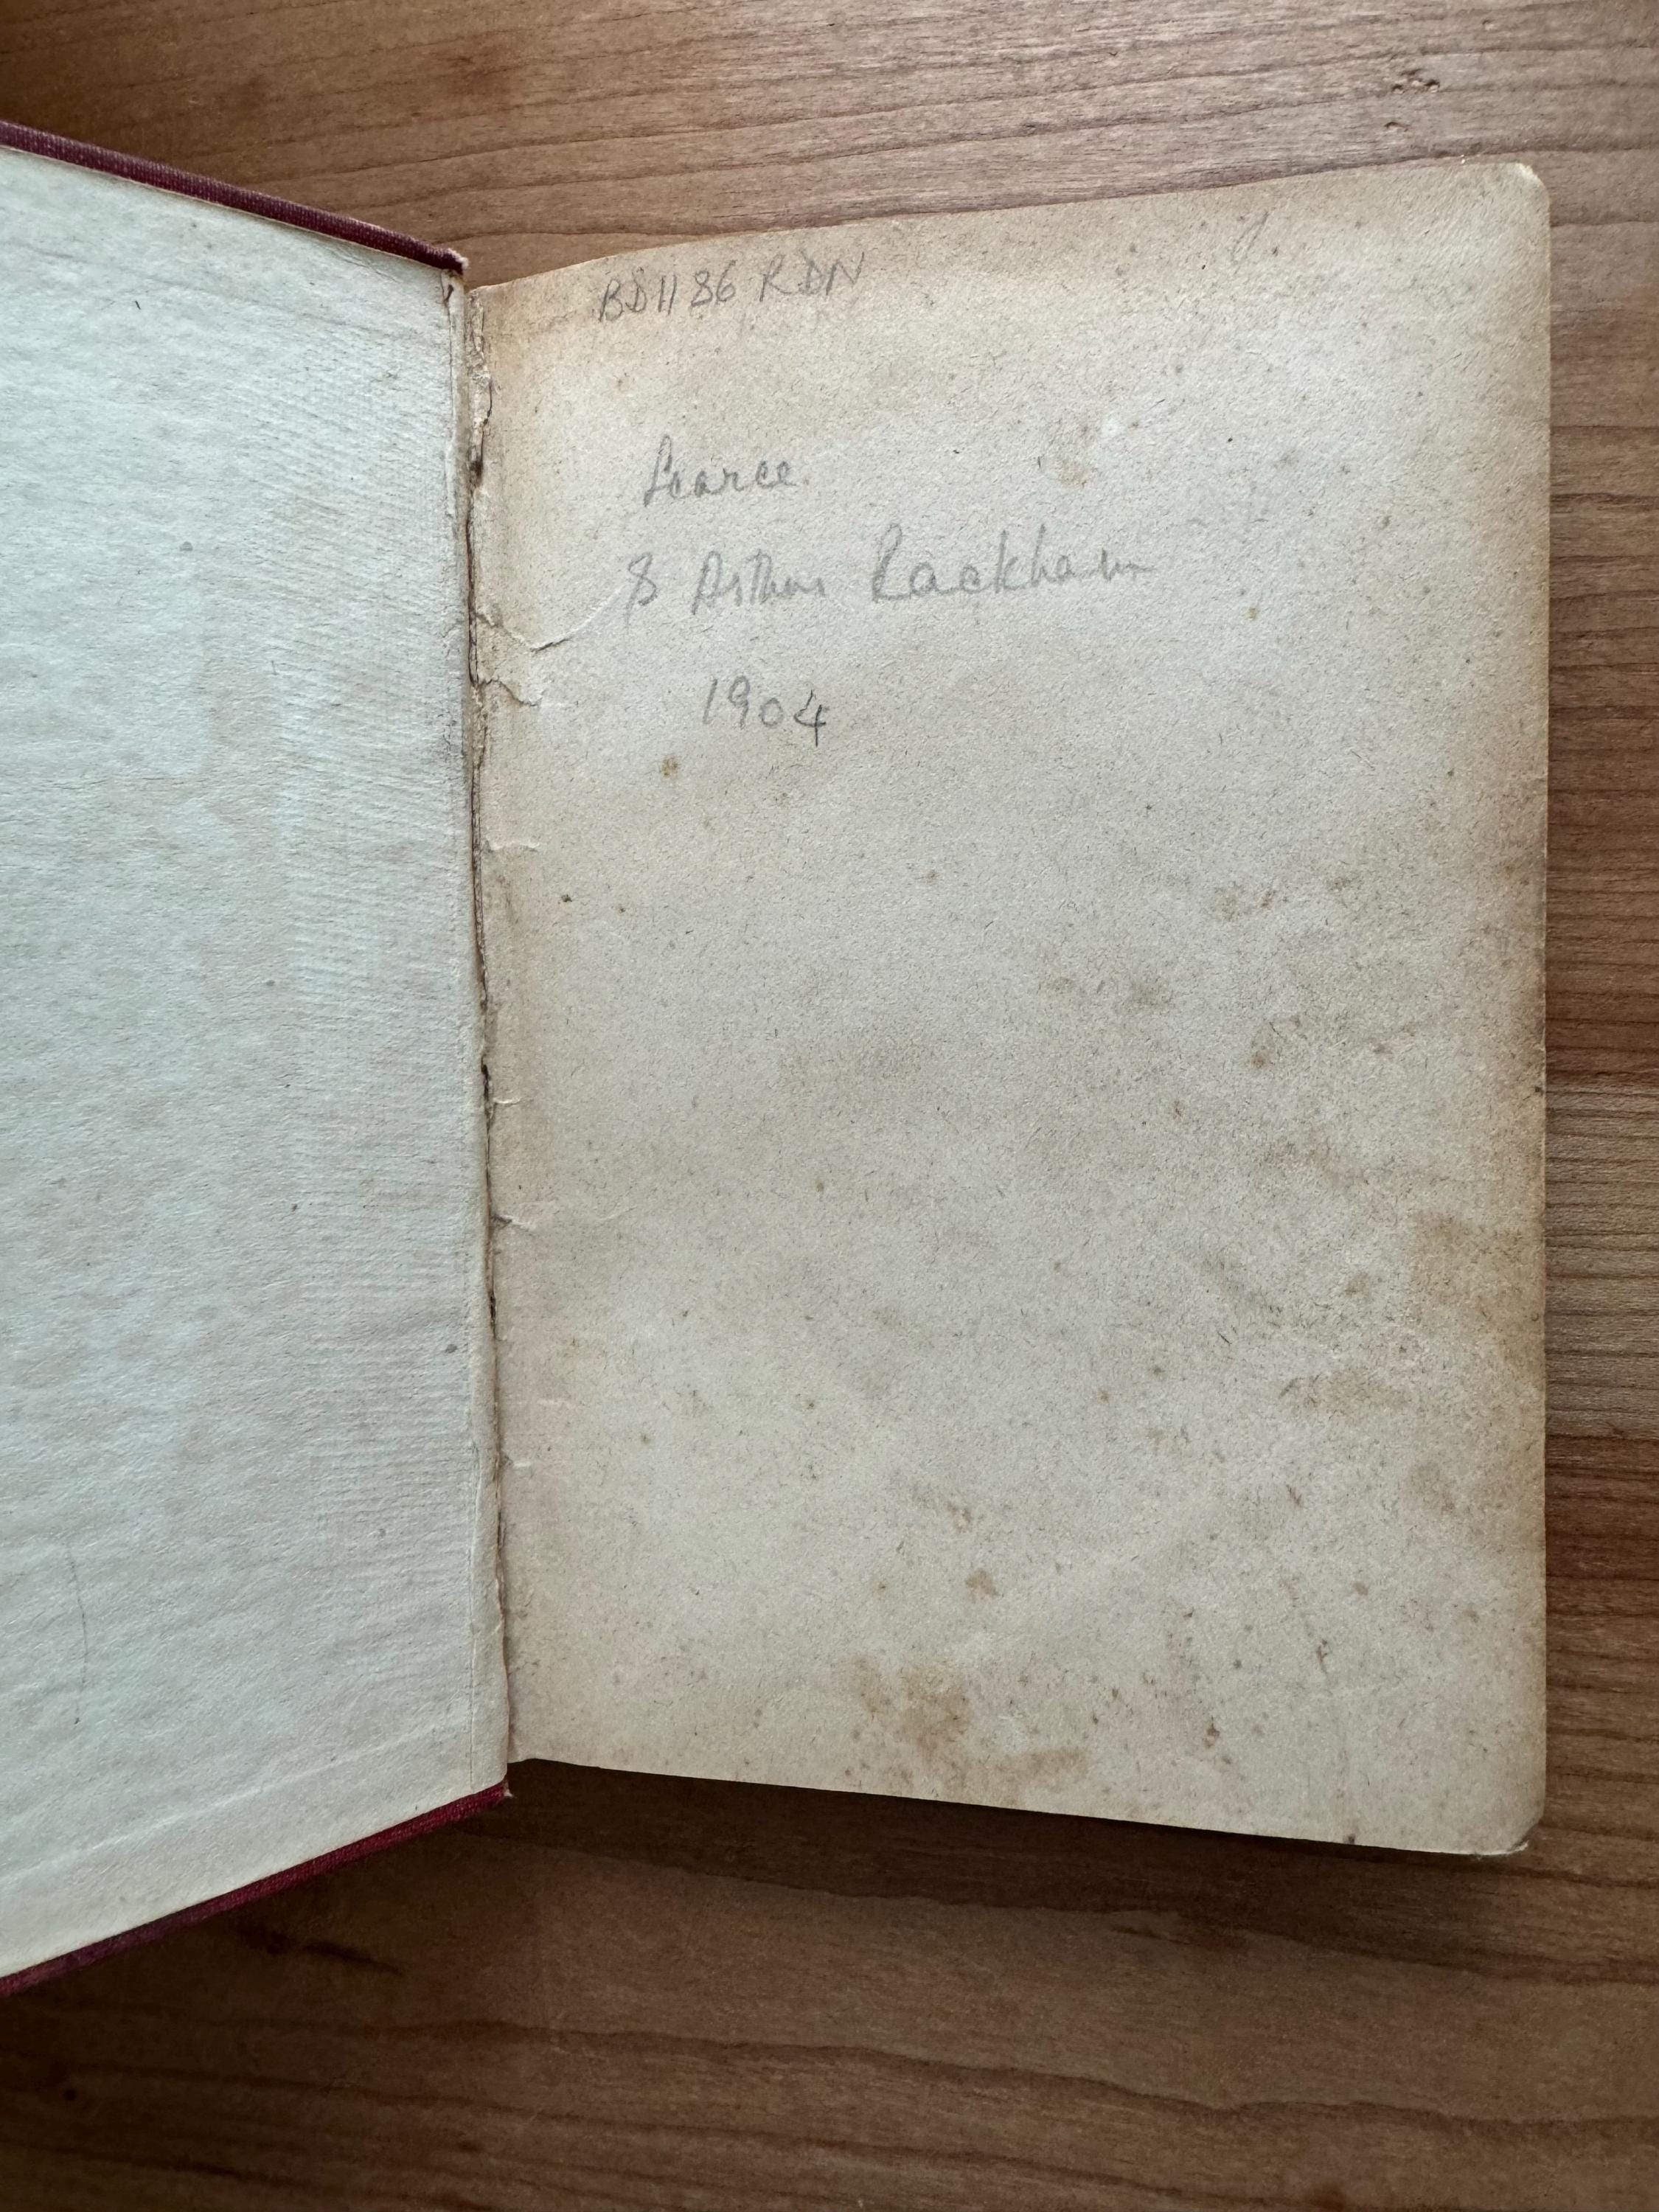 BS11 86 RDN
Scarce.
8 Arthur Rackham
1904